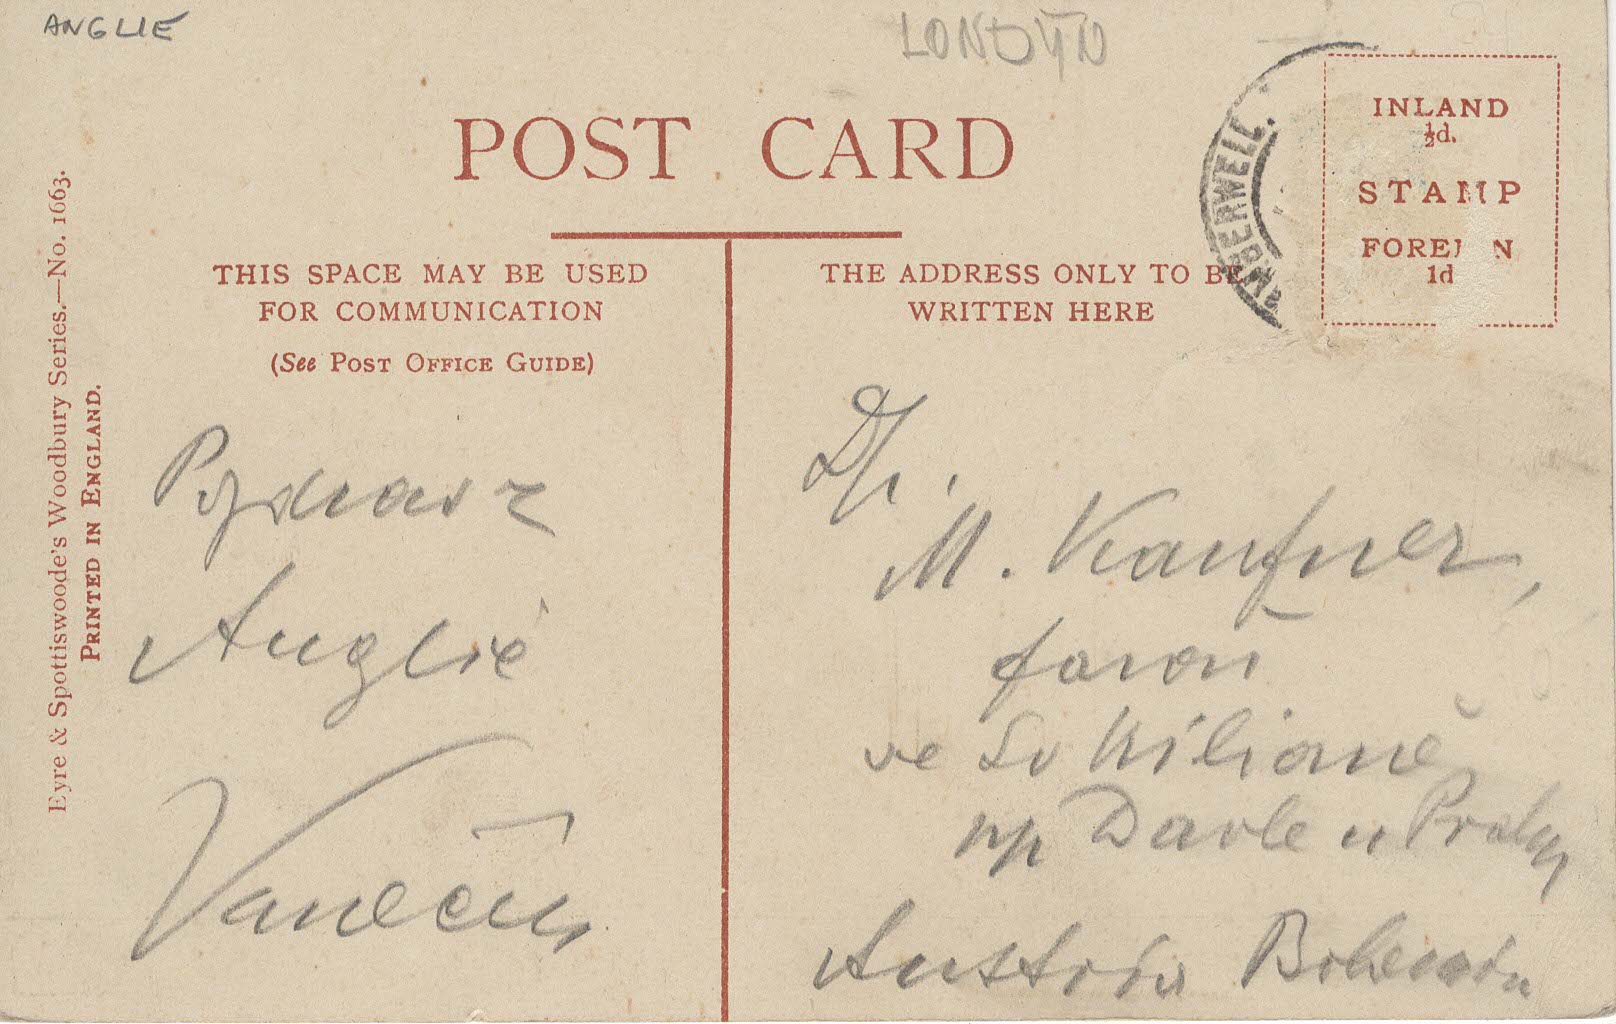 ANGLIE
LONDÝN
POST CARD
INLAND
½d.
STAMP
FOREI N
1d
BERWELL.
THIS SPACE MAY BE USED
FOR COMMUNICATION
(See POST OFFICE GUIDE)
THE ADDRESS ONLY TO BE
WRITTEN HERE
Eyre & Spottiswoode's Woodbury Series.—No. 1663.
PRINTED IN ENGLAND.
Pozdrav z
Anglie
Vaněček
Dp.
M. Kaufner,
farář
ve Sv Kiliáně
np Davle u Prahy
Austria Bohemia